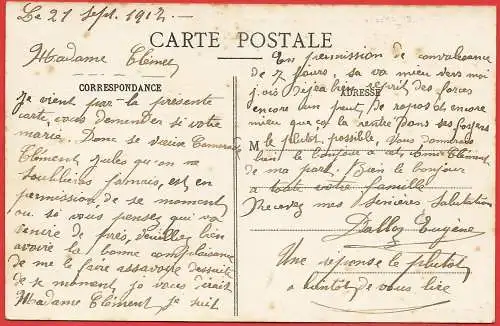 Le 21 Sept. 1917.
CARTE POSTALE
CORRESPONDANCE
Madame Clément
Je vient par la présente
carte, vous demender si votre
marie. Donc se vieux Camarade
Clément Jules qu'on ne
oublieras jamais, est en
permission de se moment
ou si vous pensez qui va
venire de près, veuillez bien
avoire la bonne complaisance
de me le faire assavoire dessuite
de se moment, je vous érait
Madame Clément je suit
ADRESSE
M
En permission de convalescence
de 7 jours, sa va mieu vers moi
j'ois déjà bien reprit des forces
encore un peut, de repos et encore
mieu que ça la rentre dans ses foyers
le plutot possible. Vous donnerais
bien le bonjour a cet ami Clément
de ma part. Bien le bonjour
a toute votre famille
Recevez mes Sénières Salutation
Dalloz Eugène
Une réponse le plutot
a bientot de vous lire